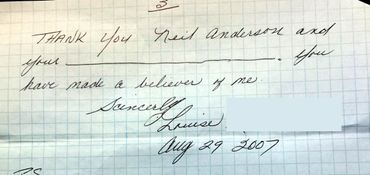 3
THANK You Neil Anderson and
your ____________________. You
have made a believer of me.
Scincerely
Louise
Aug 29 2007
PS